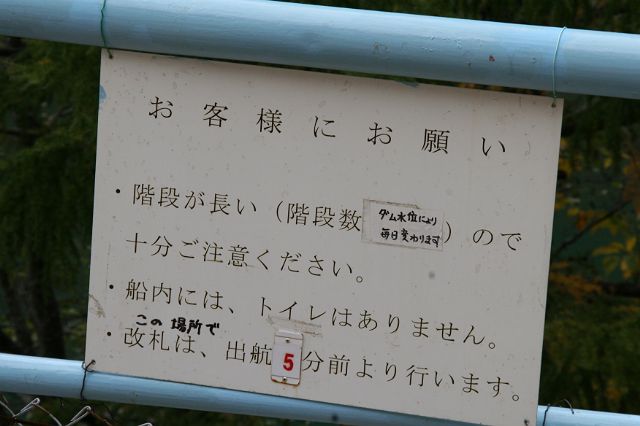 お客様にお願い
・階段が長い（階段数ダム水位により毎日変わります）ので
十分ご注意ください。
・船内には、トイレはありません。
この場所で
・改札は、出航5分前より行います。